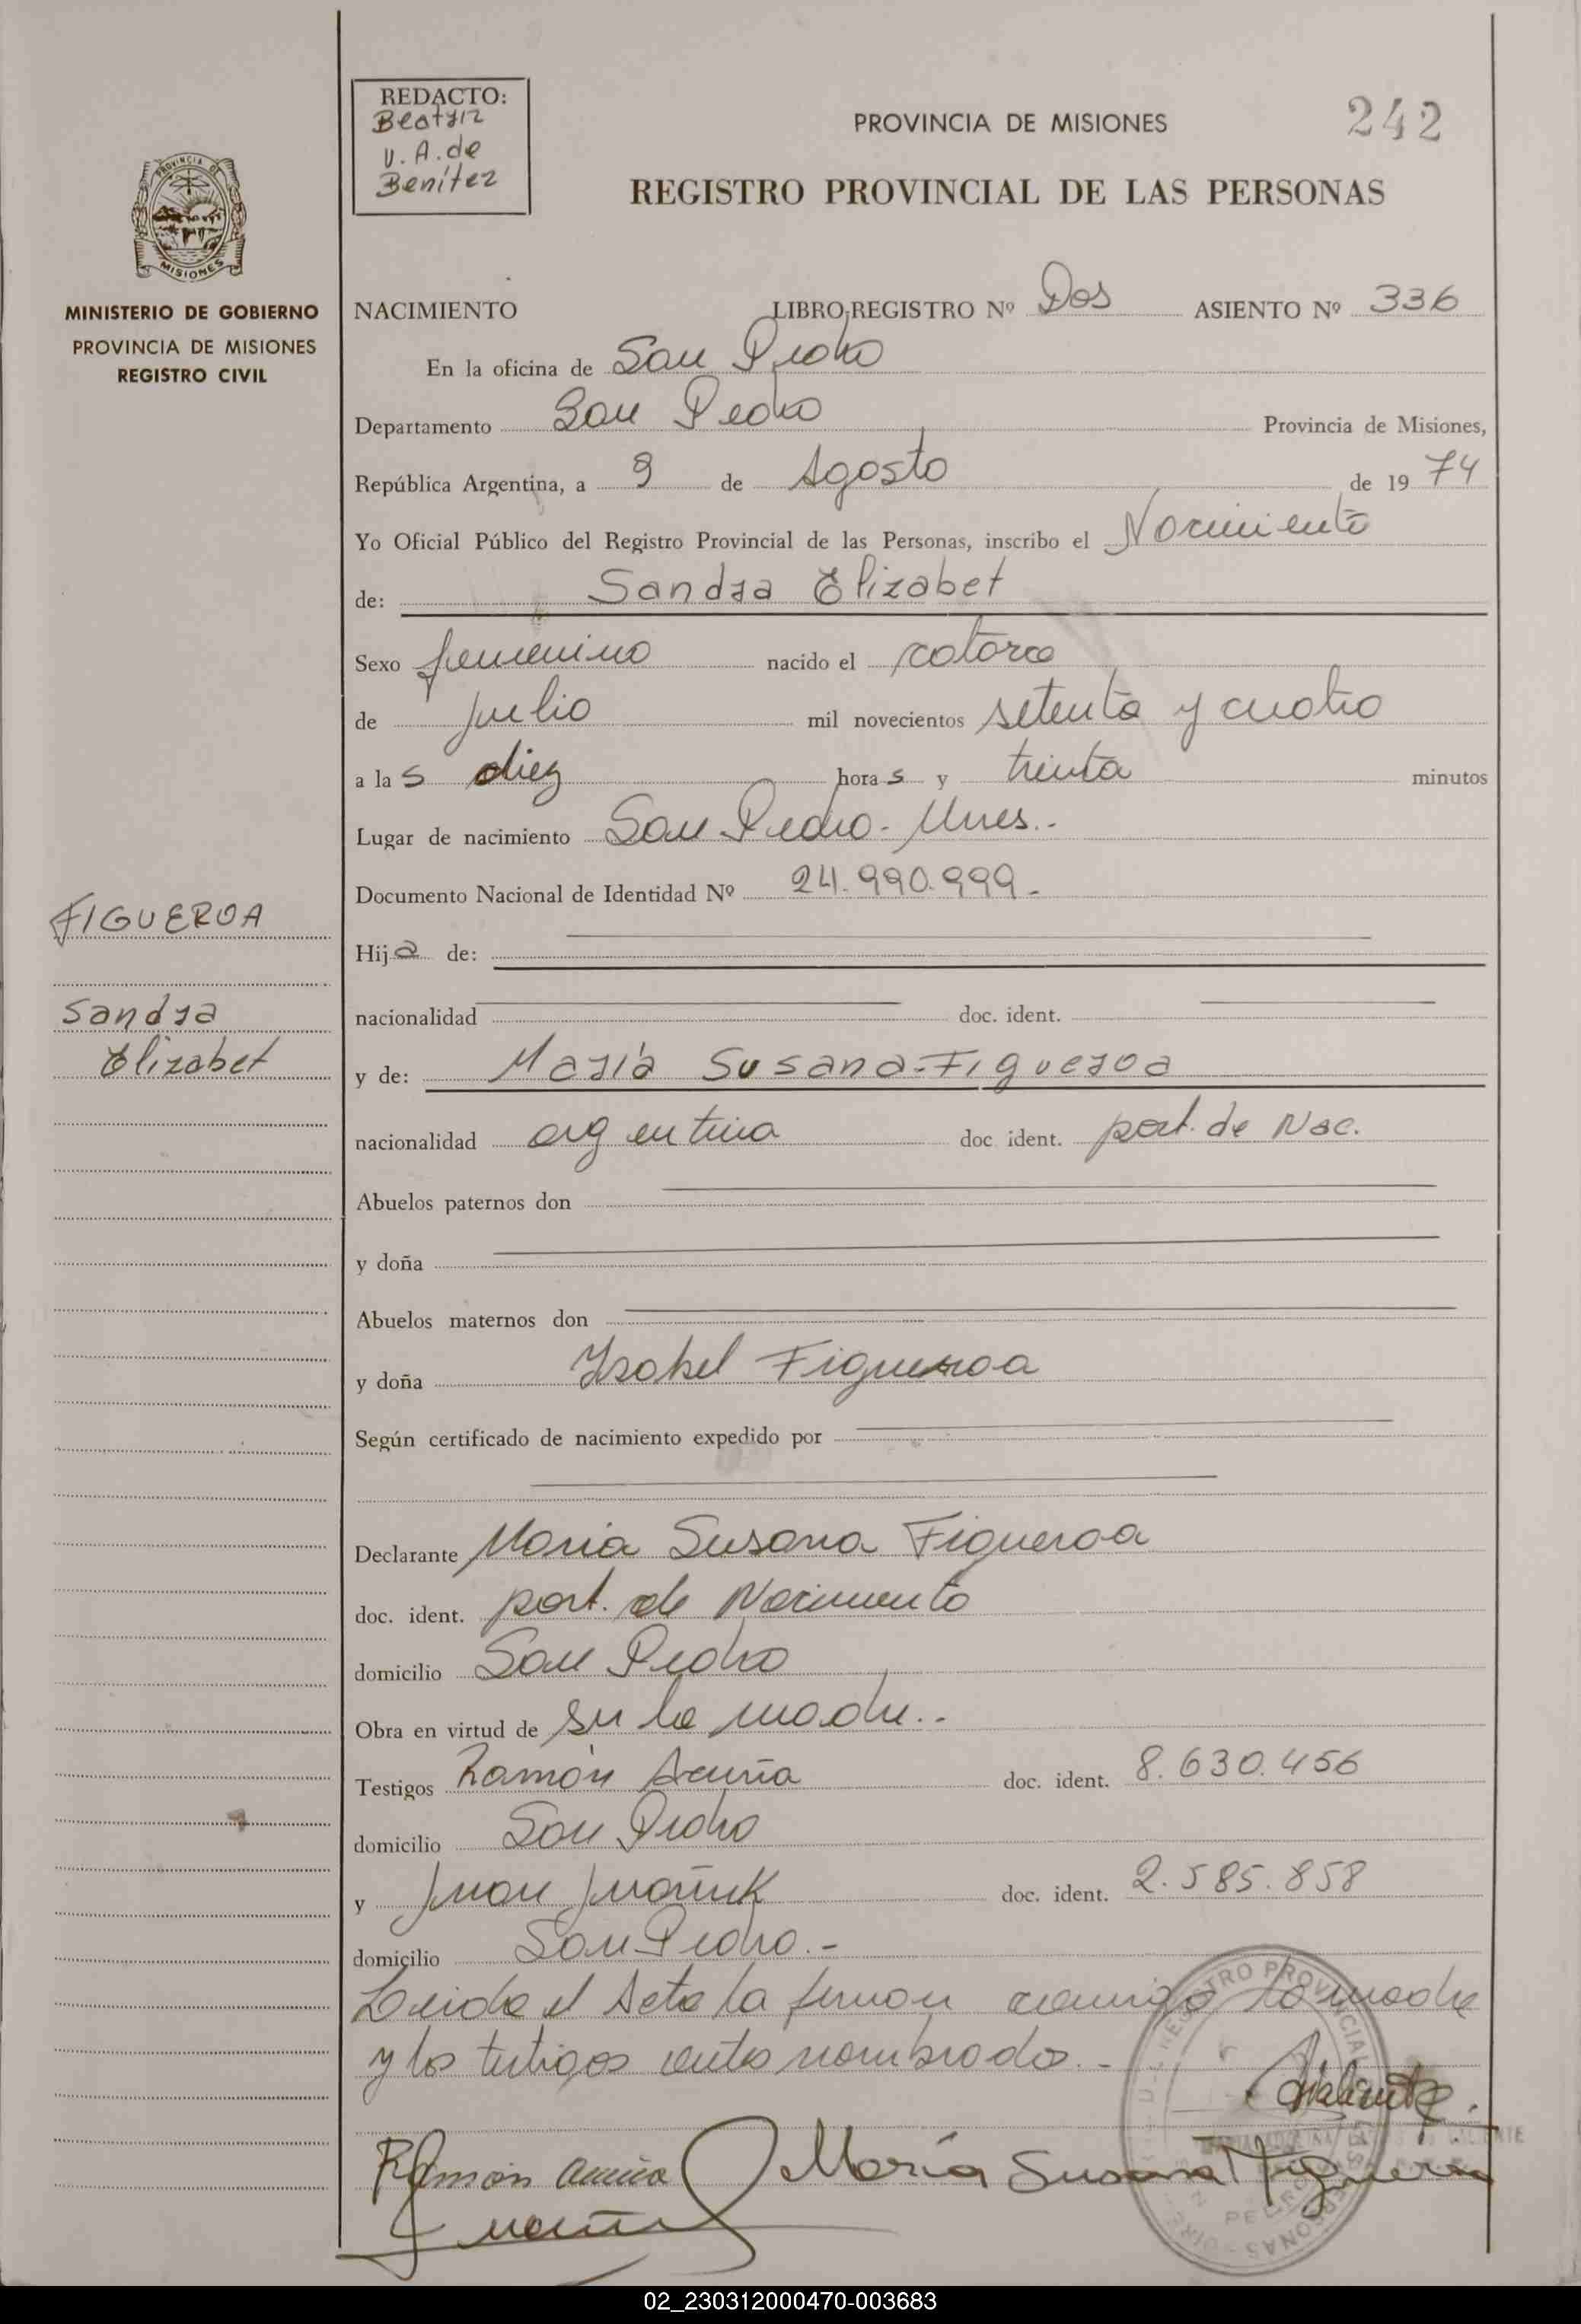 REDACTO:
Beatriz
V. A. de
Benítez
PROVINCIA DE MISIONES
242
REGISTRO PROVINCIAL DE LAS PERSONAS
PROVINCIA DE
MISIONES
MINISTERIO DE GOBIERNO
PROVINCIA DE MISIONES
REGISTRO CIVIL
NACIMIENTO LIBRO REGISTRO Nº Dos ASIENTO Nº 336
En la oficina de San Pedro
Departamento San Pedro Provincia de Misiones,
República Argentina, a 9 de Agosto de 1974
Yo Oficial Público del Registro Provincial de las Personas, inscribo el Nacimiento
de: Sandra Elizabet
Sexo femenino nacido el catorce
de Julio mil novecientos setenta y cuatro
a las diez horas y treinta minutos
Lugar de nacimiento San Pedro - Mnes.-
Documento Nacional de Identidad Nº 24.990.999.-
FIGUEROA
Sandra
Elizabet
Hija de:
nacionalidad doc. ident.
y de: María Susana Figueroa
nacionalidad argentina doc ident. part. de Nac.
Abuelos paternos don
y doña
Abuelos maternos don
y doña Ysabel Figueroa
Según certificado de nacimiento expedido por
Declarante Maria Susana Figueroa
doc. ident. part. de Nacimiento
domicilio San Pedro
Obra en virtud de ser la madre.-
Testigos Ramón Acuña doc. ident. 8.630.456
domicilio San Pedro
y Juan doc. ident. 2.585.858
domicilio San Pedro.-
Leida el Acta la firman conmigo la madre
y los testigos antes nombrados.-
Ramón Acuña María Susana Figueroa
02_230312000470-003683